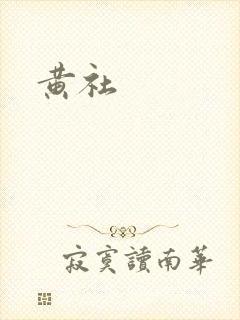 黄社
寂寞讀南華